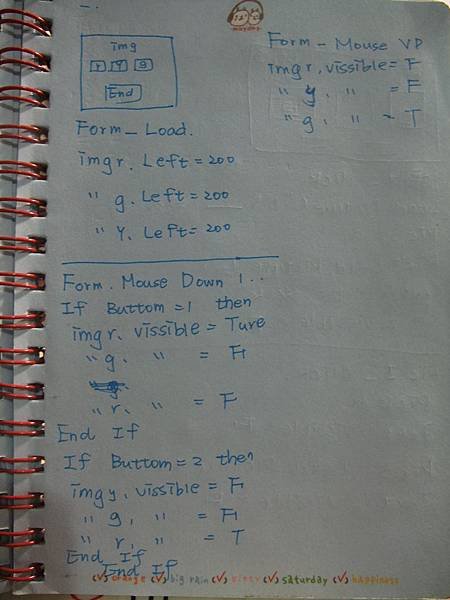 一.
img
r y g
End
Form_Load.
imgr. Left = 200
〃 g. Left = 200
〃 Y. Left = 200
Form. Mouse Down 1..
If Buttom = 1 then
imgr. vissible = Ture
〃 g. 〃 = F
〃 r. 〃 = F
End If
If Buttom = 2 then
imgy. vissible = F
〃 g, 〃 = F
〃 r, 〃 = T
End If
End If
Form - Mouse VP
imgr. vissible = F
〃 y. 〃 = F
〃 g. 〃 - T
mayday
(V) orange (V) big rain (V) (V) saturday (V) happiness